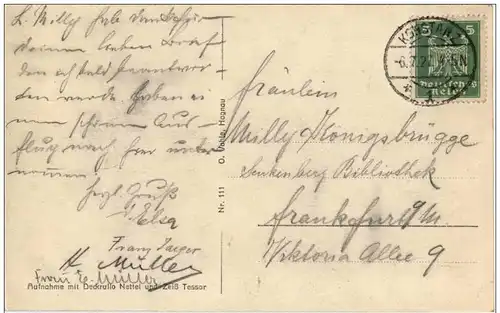 L. Milly hab Dank für
Deinen lieben Brief
den ich bald beantwor-
den werde. Haben ei-
nen schönen Aus-
flug nach hier unter-
nommen.
Herzl. Gruß
Elsa
Franz Jaeger
H. Müller
Frau E. Müller
Aufnahme mit Deckrullo Nettel und Zeiß Tessar
Nr. 111 O. Hagnau
KONSTANZ
5
Fräulein
Milly Königsbrügge
Senkenberg Bibliothek
Frankfurt a/M
Viktoria Allee 9